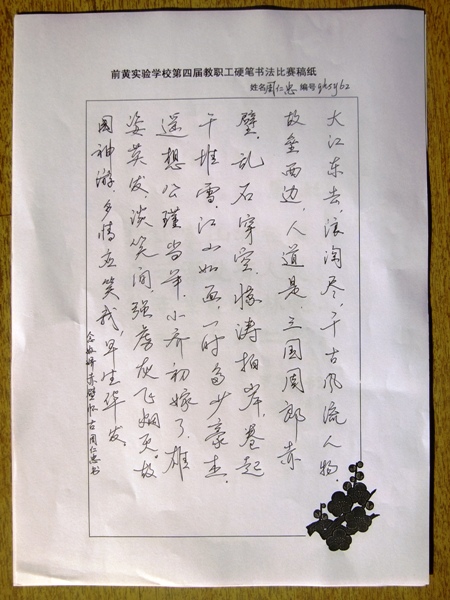 前黄实验学校第四届教职工硬笔书法比赛稿纸
姓名周仁忠 编号qhsy62
大江东去,浪淘尽,千古风流人物,
故垒西边,人道是,三国周郎赤
壁,乱石穿空,惊涛拍岸,卷起
千堆雪,江山如画,一时多少豪杰,
遥想公瑾当年,小乔初嫁了,雄
姿英发,谈笑间强虏灰飞烟灭,故
国神游,多情应笑我,早生华发
念奴娇赤壁怀古周仁忠书